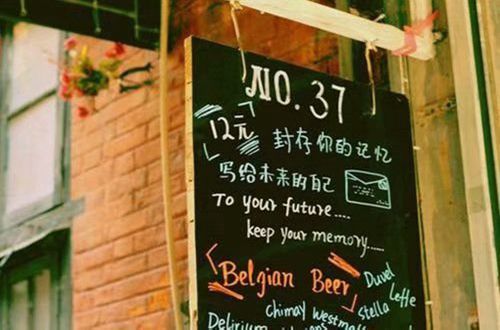 NO.37
12元
封存你的记忆
写给未来的自己
To your future....
keep your memory.....
Belgian Beer
Duvel
Leffe
Stella
chimay Westmall
Delirium